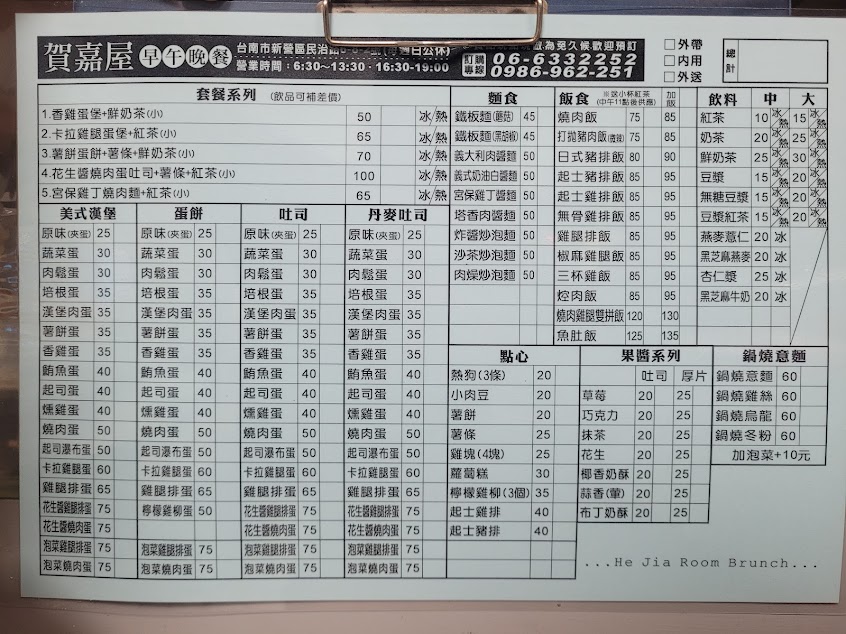 賀嘉屋 早午晚餐
台南市新營區民治路
營業時間：6:30~13:30‧16:30-19:00
為免久候‧歡迎預訂
訂購專線 06-6332252
0986-962-251
□外帶
□内用
□外送
總計
套餐系列 (飲品可補差價)
1.香雞蛋堡+鮮奶茶(小) 50 冰/熱
2.卡拉雞腿蛋堡+紅茶(小) 65 冰/熱
3.薯餅蛋餅+薯條+鮮奶茶(小) 70 冰/熱
4.花生醬燒肉蛋吐司+薯條+紅茶(小) 100 冰/熱
5.宮保雞丁燒肉麵+紅茶(小) 65 冰/熱
美式漢堡
原味(夾蛋) 25
蔬菜蛋 30
肉鬆蛋 30
培根蛋 35
漢堡肉蛋 35
薯餅蛋 35
香雞蛋 35
鮪魚蛋 40
起司蛋 40
燻雞蛋 40
燒肉蛋 50
起司瀑布蛋 50
卡拉雞腿蛋 60
雞腿排蛋 65
花生醬雞腿排蛋 75
花生醬燒肉蛋 75
泡菜雞腿排蛋 75
泡菜燒肉蛋 75
蛋餅
原味(夾蛋) 25
蔬菜蛋 30
肉鬆蛋 30
培根蛋 35
漢堡肉蛋 35
薯餅蛋 35
香雞蛋 35
鮪魚蛋 40
起司蛋 40
燻雞蛋 40
燒肉蛋 50
起司瀑布蛋 50
卡拉雞腿蛋 60
雞腿排蛋 65
檸檬雞柳蛋 50
泡菜雞腿排蛋 75
泡菜燒肉蛋 75
吐司
原味(夾蛋) 25
蔬菜蛋 30
肉鬆蛋 30
培根蛋 35
漢堡肉蛋 35
薯餅蛋 35
香雞蛋 35
鮪魚蛋 40
起司蛋 40
燻雞蛋 40
燒肉蛋 50
起司瀑布蛋 50
卡拉雞腿蛋 60
雞腿排蛋 65
花生醬雞腿排蛋 75
花生醬燒肉蛋 75
泡菜雞腿排蛋 75
泡菜燒肉蛋 75
丹麥吐司
原味(夾蛋) 25
蔬菜蛋 30
肉鬆蛋 30
培根蛋 35
漢堡肉蛋 35
薯餅蛋 35
香雞蛋 35
鮪魚蛋 40
起司蛋 40
燻雞蛋 40
燒肉蛋 50
起司瀑布蛋 50
卡拉雞腿蛋 60
雞腿排蛋 65
花生醬雞腿排蛋 75
花生醬燒肉蛋 75
泡菜雞腿排蛋 75
泡菜燒肉蛋 75
麵食
鐵板麵(蘑菇) 45
鐵板麵(黑胡椒) 45
義大利肉醬麵 50
義式奶油白醬麵 50
宮保雞丁醬麵 50
塔香肉醬麵 50
炸醬炒泡麵 50
沙茶炒泡麵 50
肉燥炒泡麵 50
飯食 ※送小杯紅茶 (中午11點後供應) 加飯
燒肉飯 75 85
打拋豬肉飯 75 85
日式豬排飯 80 90
起士豬排飯 85 95
起士雞排飯 85 95
無骨雞排飯 85 95
雞腿排飯 85 95
椒麻雞腿飯 85 95
三杯雞飯 85 95
焢肉飯 85 95
燒肉雞腿雙拼飯 120 130
魚肚飯 125 135
飲料 中 大
紅茶 10 冰/熱 15 冰/熱
奶茶 20 冰/熱 25 冰/熱
鮮奶茶 25 冰/熱 30 冰/熱
豆漿 15 冰/熱 20 冰/熱
無糖豆漿 15 冰/熱 20 冰/熱
豆漿紅茶 15 冰/熱 20 冰/熱
燕麥薏仁 20 冰
黑芝麻燕麥 20 冰
杏仁漿 25 冰
黑芝麻牛奶 20 冰
點心
熱狗(3條) 20
小肉豆 20
薯餅 20
薯條 25
雞塊(4塊) 25
蘿蔔糕 30
檸檬雞柳(3個) 35
起士雞排 40
起士豬排 40
果醬系列
吐司 厚片
草莓 20 25
巧克力 20 25
抹茶 20 25
花生 20 25
椰香奶酥 20 25
蒜香(葷) 20 25
布丁奶酥 20 25
鍋燒意麵
鍋燒意麵 60
鍋燒雞絲 60
鍋燒烏龍 60
鍋燒冬粉 60
加泡菜+10元
...He Jia Room Brunch...